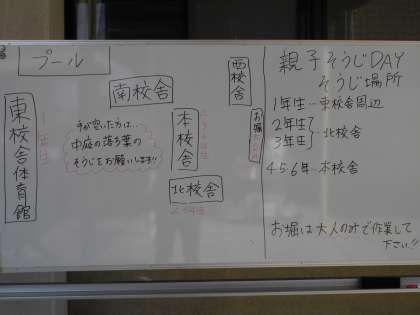 プール
南校舎
西校舎
東校舎体育館
1年生
手が空いた方は…
中庭の落ち葉の
そうじをお願いします!!
本校舎
4.5.6年生
お堀
大人のみ
北校舎
2.3年生
親子そうじDAY
そうじ場所
1年生…東校舎周辺
2年生
3年生 北校舎
456年…本校舎
お堀は大人のみで作業して
下さい!!